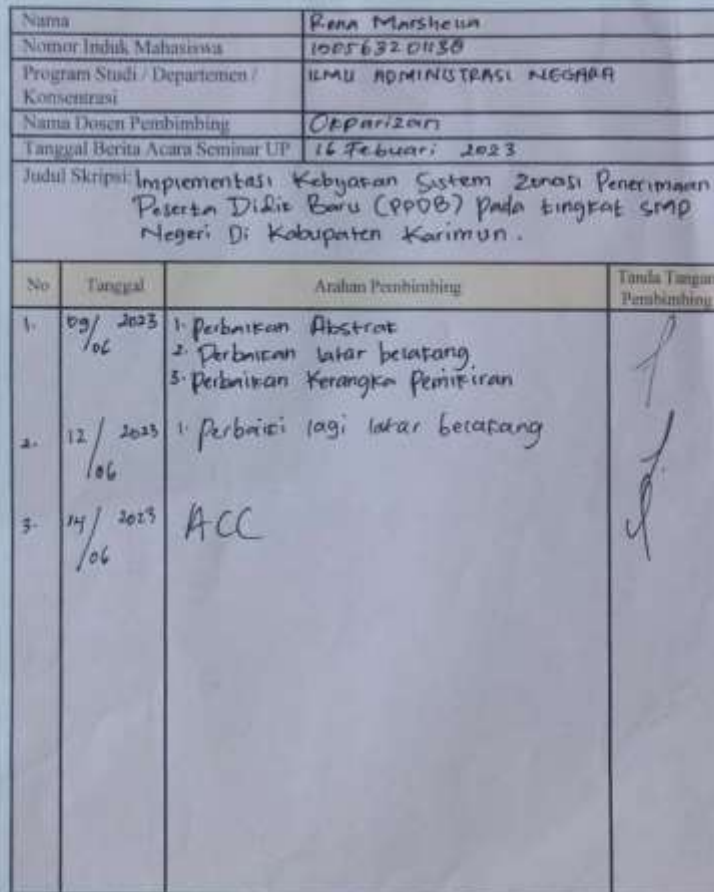 Nama Rena Marshella
Nomor Induk Mahasiswa
Program Studi / Departemen / ILMU ADMINISTRASI NEGARA
Konsentrasi
Nama Dosen Pembimbing Okparizan
Tanggal Berita Acara Seminar UP 16 Febuari 2023
Judul Skripsi: Implementasi Kebyakan Sistem Zonasi Penerimaan
Peserta Didik Baru (PPDB) Pada tingkat SMP
Negeri Di Kabupaten Karimun.
No Tanggal Arahan Pembimbing Tanda Tangan
Pembimbing
1. 09/06 2023 1. Perbaikan Abstrak
2. Perbaikan latar belakang
3. Perbaikan Kerangka Pemikiran
2. 12/06 2023 1. Perbaiki lagi latar belakang
3. 14/06 2023 ACC